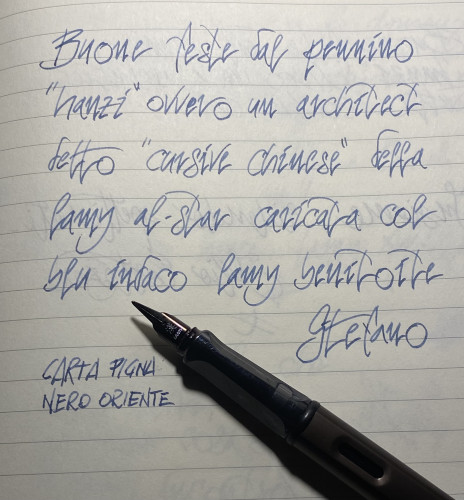 Buone feste dal pennino
"hanzi" ovvero un architect
detto "cursive chinese" della
lamy al-star caricata col
blu indaco lamy benitoite
Stefano
CARTA PIGNA
NERO ORIENTE